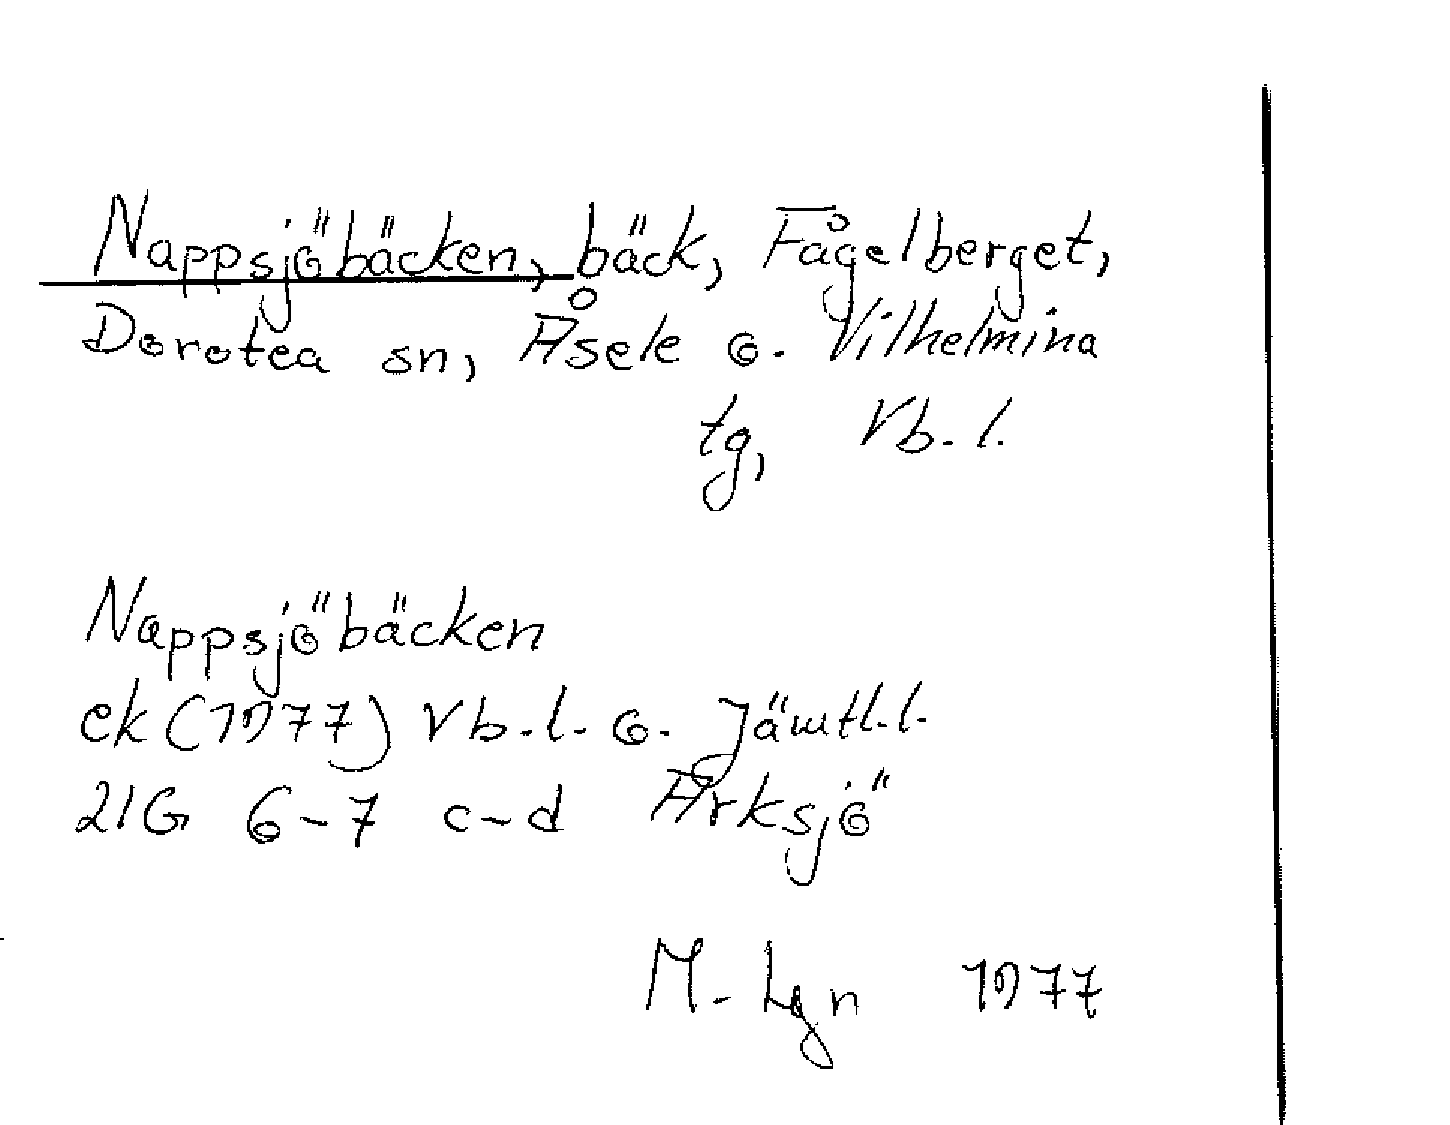 Nappsjöbäcken, bäck, Fågelberget,
Dorotea sn, Åsele o. Vilhelmina
tg, Vb. l.
Nappsjöbäcken
ek (1977) Vb. l. o. Jämtl. l.
21G 6-7 c-d Arksjö
M. Lgn 1977